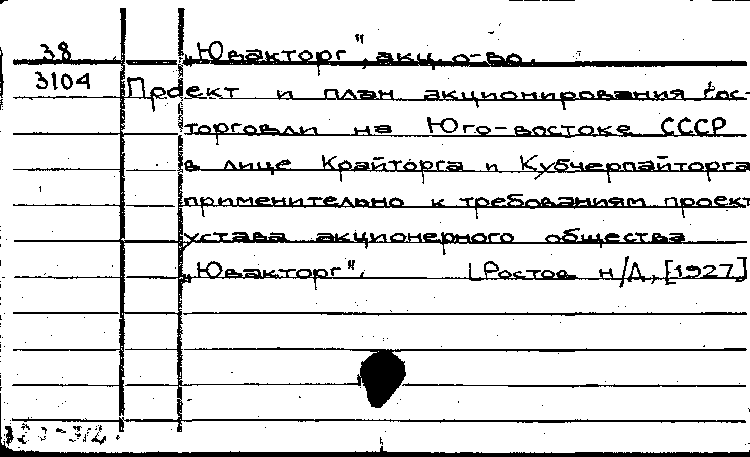 38 „Ювакторг", акц. о-во.
3104 Проект и план акционирования гос-
торговли на Юго-востоке СССР
в лице Крайторга и Кубчерпайторга
применительно к требованиям проект
устава акционерного общества
„Ювакторг". [Ростов н/Д, [1927]